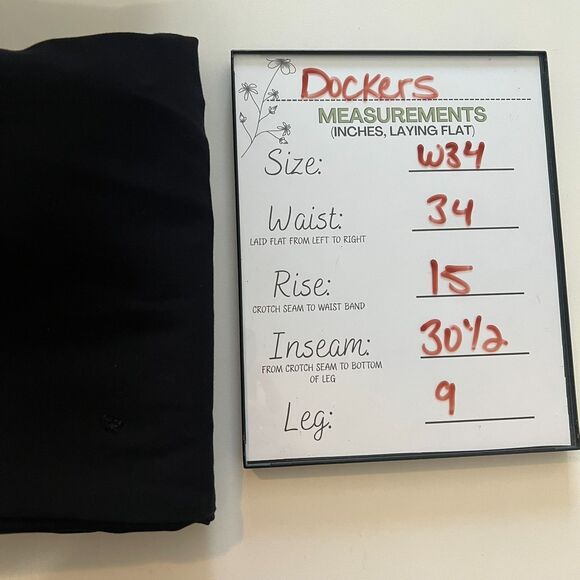 Dockers
MEASUREMENTS
(INCHES, LAYING FLAT)
Size: W34
Waist: 34
LAID FLAT FROM LEFT TO RIGHT
Rise: 15
CROTCH SEAM TO WAIST BAND
Inseam: 30 1/2
FROM CROTCH SEAM TO BOTTOM
OF LEG
Leg: 9